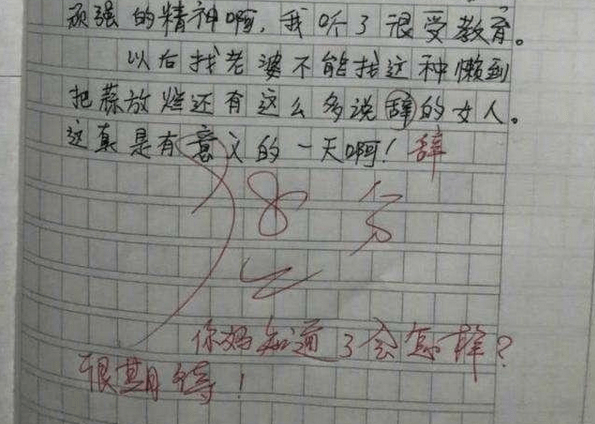 顽强的精神啊，我听了很受教育。
以后找老婆不能找这种懒到
把蒜放烂还有这么多说辞的女人。
这真是有意义的一天啊！辞
8分
你妈知道了会怎样？
很期待！